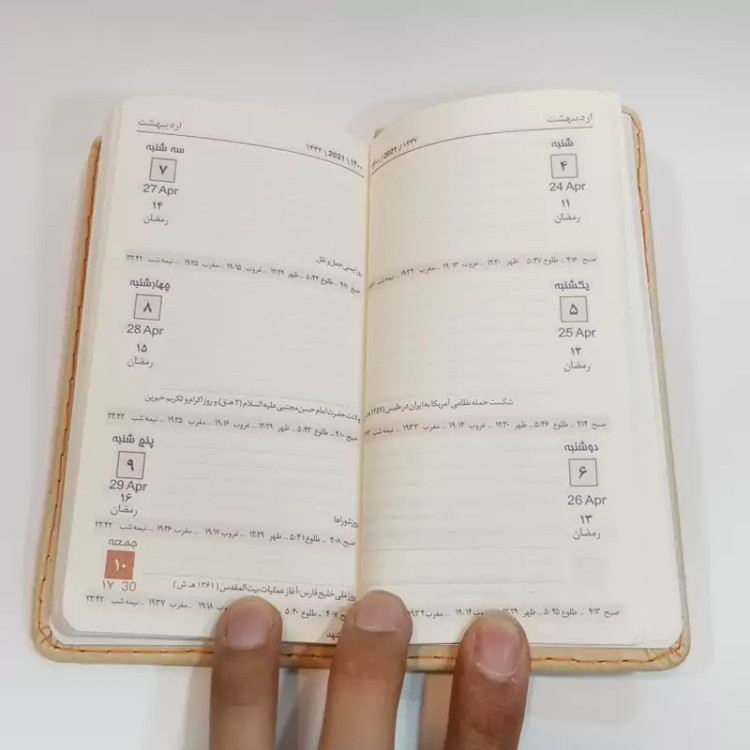 اردیبهشت
۱۴۰۰/2021/۱۴۴۲
شنبه
۴
24 Apr
۱۱
رمضان
صبح ۴:۱۶ _ طلوع ۵:۴۷ _ ظهر ۱۲:۳۰ _ غروب ۱۹:۱۳ _ مغرب ۱۹:۳۲ _ نیمه شب
یکشنبه
۵
25 Apr
۱۲
رمضان
شکست حمله نظامی آمریکا به ایران در طبس (۱۳۵۹
صبح ۴:۱۴ _ طلوع ۵:۴۶ _ ظهر ۱۲:۳۰ _ غروب ۱۹:۱۴ _ مغرب ۱۹:۳۳ _ نیمه شب
دوشنبه
۶
26 Apr
۱۳
رمضان
صبح ۴:۱۳ _ طلوع ۵:۴۵ _ ظهر ۱۲:۲۹ _ غروب ۱۹:۱۴ _ مغرب ۱۹:۳۴
اردیبهشت
۱۴۰۰\2021\۱۴۴۲
سه شنبه
۷
27 Apr
۱۴
رمضان
روز ایمنی حمل و نقل
صبح ۴:۱۱ _ طلوع ۵:۴۴ _ ظهر ۱۲:۲۹ _ غروب ۱۹:۱۵ _ مغرب ۱۹:۳۵ _ نیمه شب ۲۳:۴۲
چهارشنبه
۸
28 Apr
۱۵
رمضان
ولادت حضرت امام حسن مجتبی علیه السلام (۳ ه.ق) و روز اکرام و تکریم خیرین
صبح ۴:۱۰ _ طلوع ۵:۴۳ _ ظهر ۱۲:۲۹ _ غروب ۱۹:۱۶ _ مغرب ۱۹:۳۵ _ نیمه شب ۲۳:۴۲
پنج شنبه
۹
29 Apr
۱۶
رمضان
روز شوراها
صبح ۴:۰۸ _ طلوع ۵:۴۱ _ ظهر ۱۲:۲۹ _ غروب ۱۹:۱۷ _ مغرب ۱۹:۳۶ _ نیمه شب ۲۳:۴۲
جمعه
۱۰
30 ۱۷
روز ملی خلیج فارس-آغاز عملیات بیت المقدس (۱۳۶۱ هـ.ش)
۴:۰۷ _ طلوع ۵:۴۰ _ غروب ۱۹:۱۸ _ مغرب ۱۹:۳۷ _ نیمه شب ۲۳:۴۲